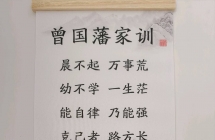 曾国藩家训
晨不起 万事荒
幼不学 一生茫
能自律 乃能强
克己者 路方长